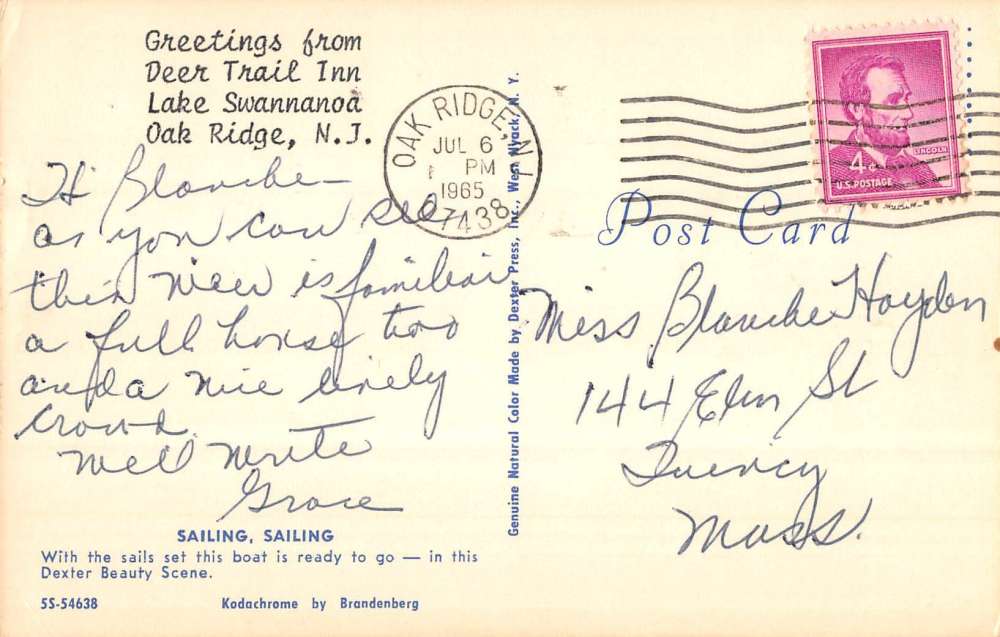 Greetings from
Deer Trail Inn
Lake Swannanoa
Oak Ridge, N.J.
Hi Blanche—
as you can see
this view is familiar
a full house too
and a nice lively
crowd.
Will write
Grace
SAILING, SAILING
With the sails set this boat is ready to go — in this
Dexter Beauty Scene.
5S-54638 Kodachrome by Brandenberg
Genuine Natural Color Made by Dexter Press, Inc., West Nyack, N. Y.
OAK RIDGE, N J
JUL 6
PM
1965
07438
LINCOLN
4¢
U.S. POSTAGE
Post Card
Miss Blanche Hayden
144 Elm St
Quincy
Mass.